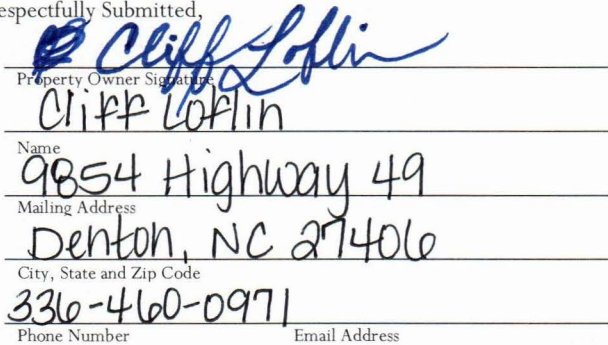 espectfully Submitted,
Cliff Loflin
Property Owner Signature
Cliff Loflin
Name
9854 Highway 49
Mailing Address
Denton, NC 27406
City, State and Zip Code
336-460-0971
Phone Number Email Address